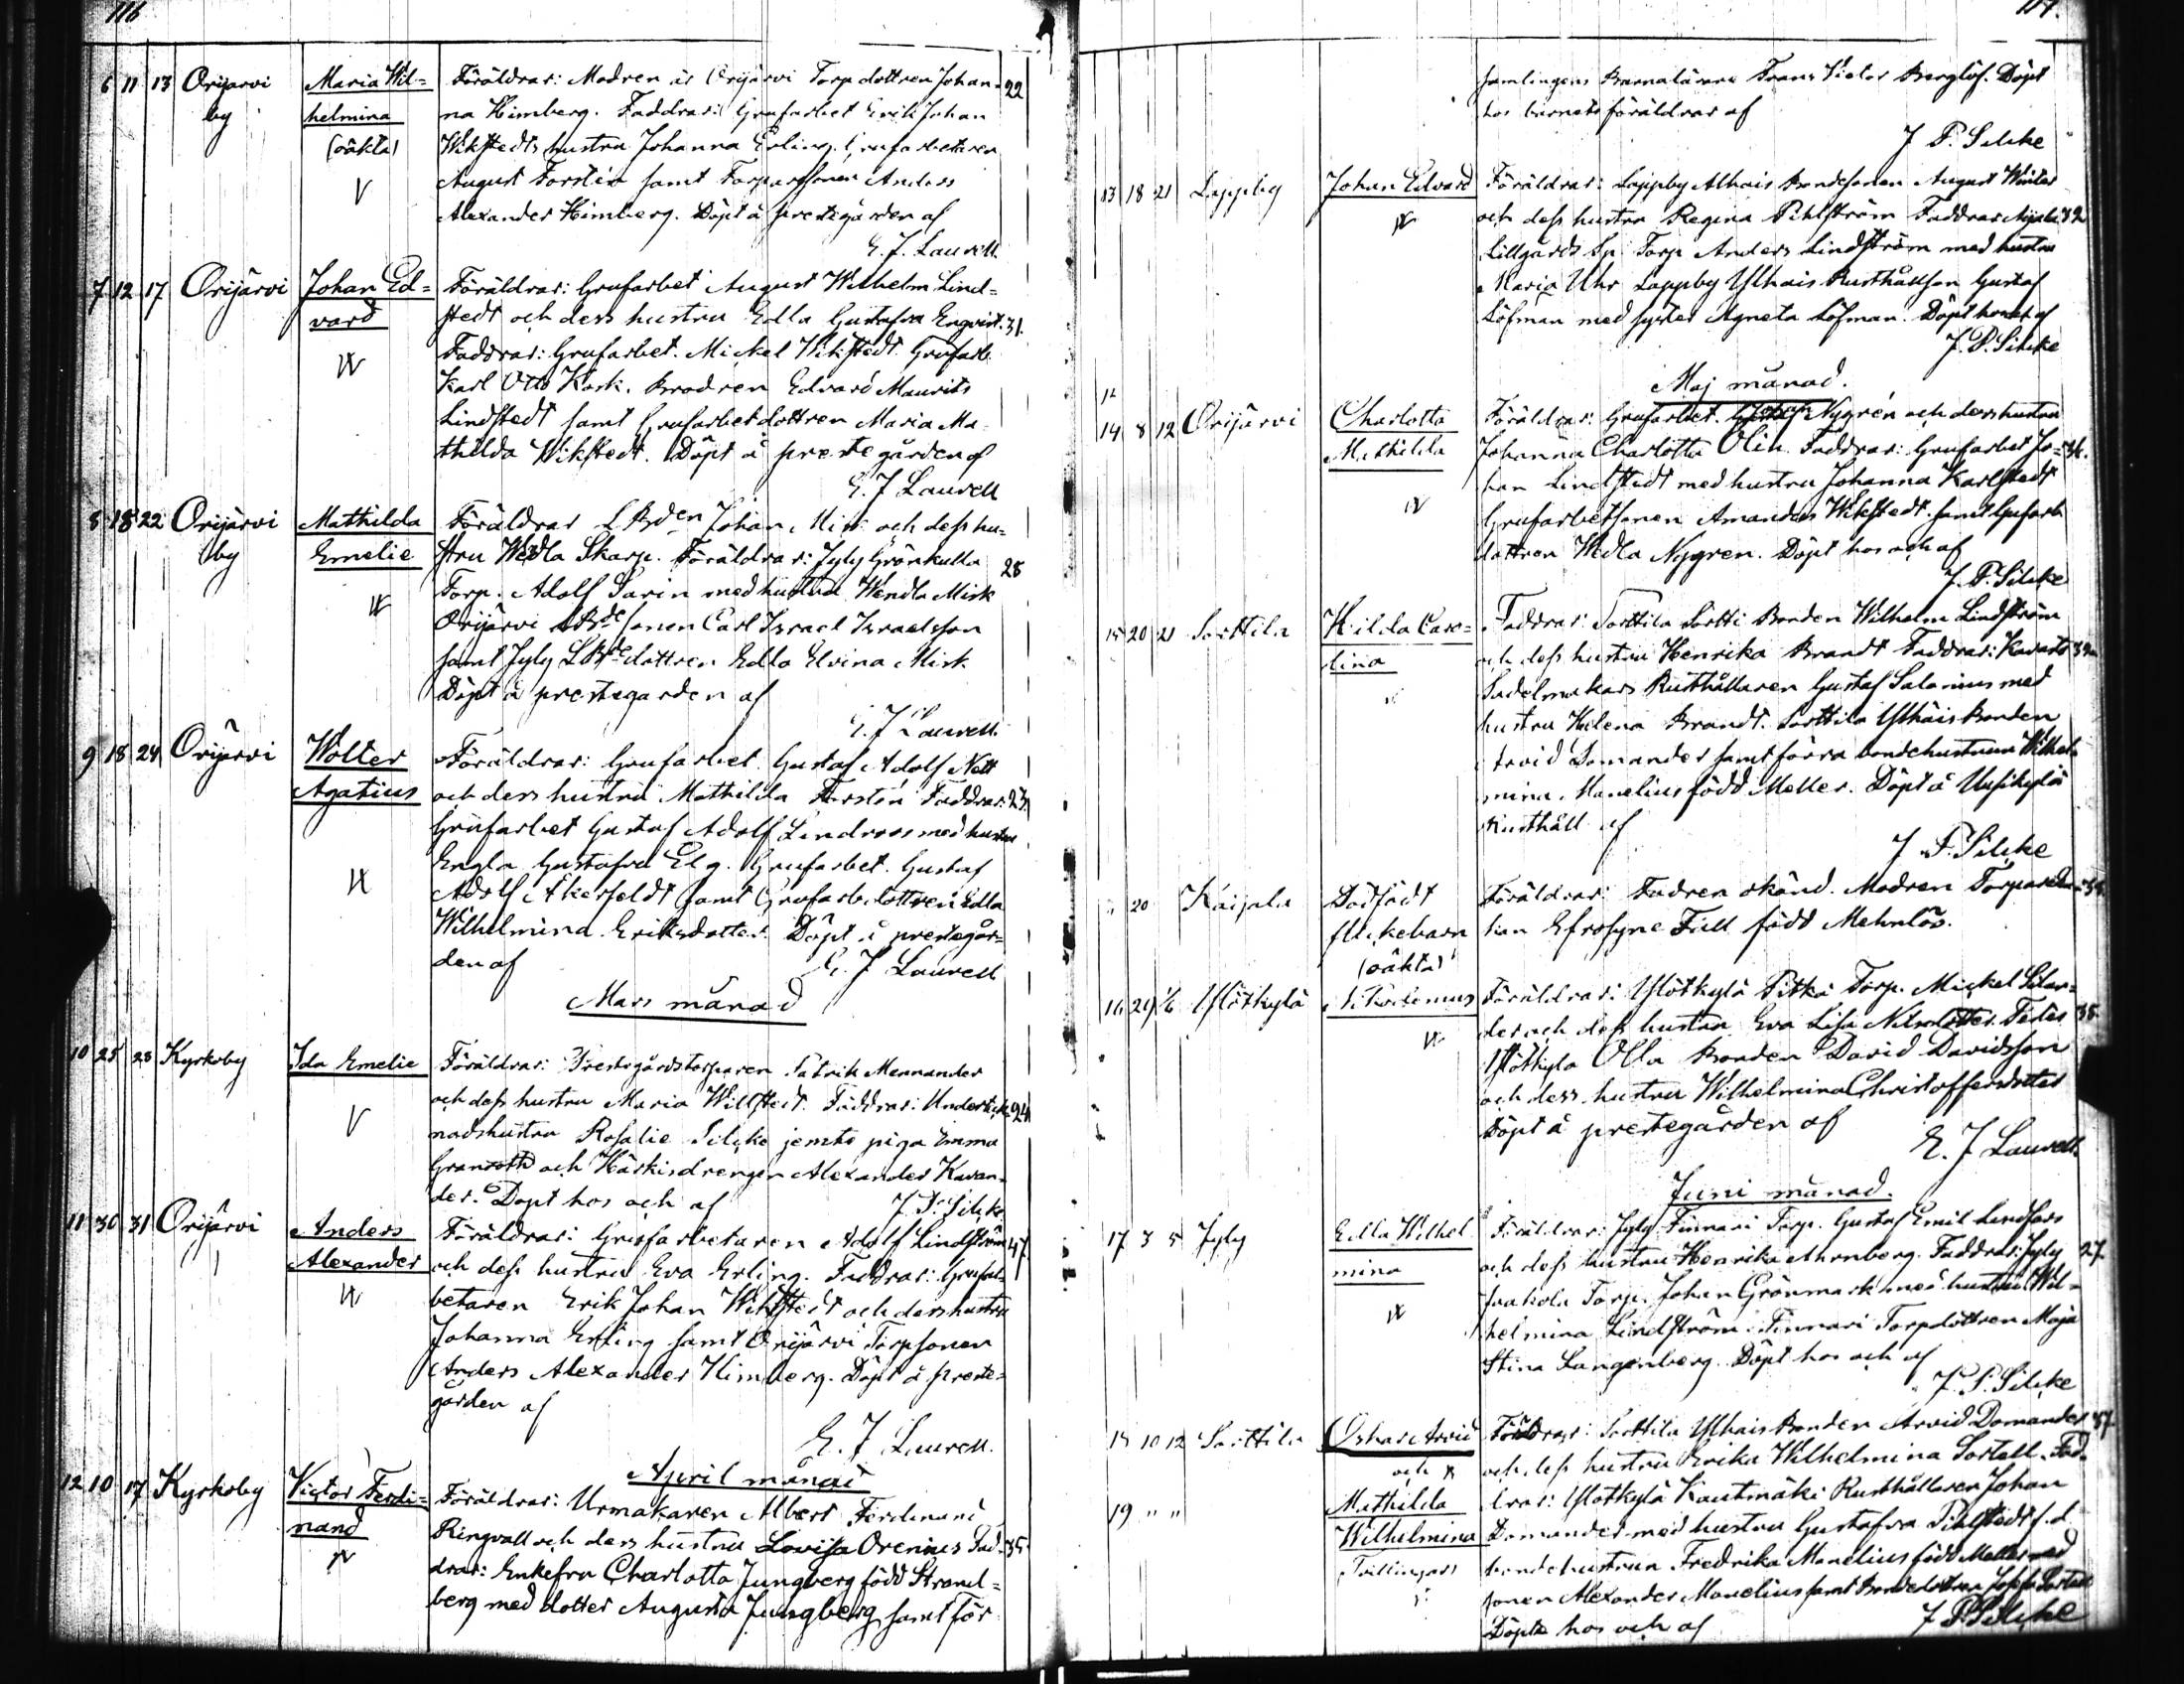 116
6 11 13 Orijärvi Maria Wil= Föräldrar: Modren är Orijärvi Torp dottren Johan- 22
by helmina na Himberg. Faddrar: Grufarbet Erik Johan
(oäkta) Wikstedts hustru Johanna Erling. Grufarbetaren
August Forstén samt Torparsonen Anders
Alexander Himberg. Döpt å prestegården af
E. J. Laurell.
7 12 17 Orijärvi Johan Ed= Föräldrar: Grufarbet August Wilhelm Lind=
vard stedt och dess hustru Edla Gustafva Engvist. 31.
Faddrar: Grufarbet. Mickel Wikstedt. Grufarb.
Karl Otto Kark. Brodren Edvard Maurits
Lindstedt samt Grufarbetdottren Maria Ma-
thilda Wikstedt. Döpt å prestegården af
E. J Laurell
8 18 22 Orijärvi Mathilda Föräldrar LBden Johan Mirk och dess hu=
by Emelie stru Wedla Skarp. Föräldrar: Jyly Grönkulla 28
Torp. Adolf Sarin med hustru Wendla Mirk
Orijärvi LBdesonen Carl Israel Israelsson
samt Jyly LBdedottren Edla Elvina Mirk
Döpt å prestegården af
E. J Laurell.
9 18 24 Orijärvi Wolter Föräldrar: Grufarbet. Gustaf Adolf Nett
Agatius och dess hustru Mathilda Forstén Faddrar: 27.
Grufarbet Gustaf Adolf Lindroos med hustru
Engla Gustafva Elg. Grufarbet. Gustaf
Adolf Åkerfeldt samt Grufarb.dottren Edla
Wilhelmina Eriksdotter. Döpt å prestegår=
den af E. J Laurell
Mars månad
10 25 28 Kyrkoby Ida Emelie Föräldrar: Prestegårdstorparen Patrik Mennander
och dess hustru Maria Willstedt. Faddrar: Underteck= 24
nads hustru Rosalie Silcke jemte piga Emma
Granroth och Härkisdrengen Alexander Kavan-
der. Döpt hos och af J. F. Silcke
11 30 31 Orijärvi Anders Föräldrar: Grufarbetaren Adolf Lindström 47.
Alexander och dess hustru Eva Erling. Faddrar: Grufar-
betaren Erik Johan Wikstedt och dess hustru
Johanna Erling samt Orijärvi Torpsonen
Anders Alexander Himberg. Döpt å preste=
gården af
E. J Laurell.
April månad
12 10 17 Kyrkoby Victor Ferdi= Föräldrar: Urmakaren Albert Ferdinand
nand Ringvall och dess hustru Lovisa Orenius Fad= 35.
drar: Enkefru Charlotta Jungberg född Strand=
berg med dotter Augusta Jungberg samt för
117.
samlingens Barnalärare Frans Victor Berglöf. Döpt
hos barnets föräldrar af
J F. Silcke
13 18 21 Lappby Johan Edvard Föräldrar: Lappby Alhais Bondesonen August Winter
och dess hustru Regina Pihlström Faddrar 32
Lillgårds Torp Anders Lindström med hustru
Maria Uhr Lappby Ylhais Rusthållson Gustaf
Löfman med syster Agneta Löfman. Döpt hos och af
J. F. Silcke
Maj månad.
14 8 12 Orijärvi Charlotta Föräldrar: Grufarbet. Nygrén och dess hustru
Mathilda Johanna Charlotta Olin. Faddrar: Grufarbet Jo= 36.
han Lindstedt med hustru Johanna Karlstedt
Grufarbetsonen Amandus Wikstedt samt Grufarb
dottren Wedla Nygren. Döpt hos och af
J. F. Silcke
15 20 21 Sorttila Hilda Caro= Faddrar: Sorttila Sortti Bonden Wilhelm Lindström
lina och dess hustru Henrika Brandt Faddrar:
Sadelmakars Rusthållaren Gustaf Salonius med
hustru Helena Brandt. Sorttila Ylhäis Bonden
Arvid Domander samt förra bondehustrun Wilhel-
mina Manelius född Meller. Döpt å
Rusthåll af
J F. Silcke
20 Kaijala Dödfödt Föräldrar: Fadren okänd. Modren Torpareen-
flickebarn kan Efrosyne Fill född Mehnlös.
(oäkta)
16 29 1/6 Ylötkylä Nikodemus Föräldrar: Ylötkylä Pitkä Torp. Mickel Silan-
der och dess hustru Eva Lisa Nilsdotter. 38
Ylötkylä Olla Bonden David Davidsson
och dess hustru Wilhelmina Christoffersdotter
Döpt å prestegården af
E. J Laurell.
Juni månad.
17 3 5 Jyly Edla Wilhel Föräldrar: Jyly Finnari Torp. Gustaf Emil Lindfors
mina och dess hustru Henrika Ahrnberg. Faddrar: Jyly 27.
Torp. Johan Grönmark med hustru Wil=
helmina Lindström. Finnari Torpdottren Maja
Stina Langenberg. Döpt hos och af
J. F. Silcke
18 10 12 Sorttila Oskar Arvid Föräldrar: Sorttila Ylhais Bonden Arvid Domander 37.
och och dess hustru Erika Wilhelmina Sortell. Fad-
19 " " Mathilda drar: Ylötkylä Kautmäki Rusthållaren Johan
Wilhelmina Domander med hustru Gustafva Pihlstedt f.d.
Tvillingar bondehustrun Fredrika Manelius född Meller med
sonen Alexander Manelius samt Bondedottren Josefa Sortell
Döpta hos och af J F. Silcke